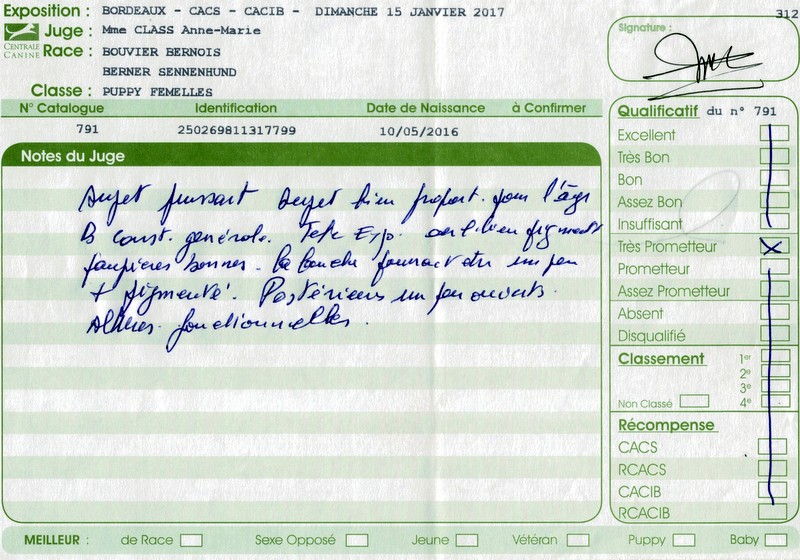 Exposition : BORDEAUX - CACS - CACIB - DIMANCHE 15 JANVIER 2017
312
CENTRALE CANINE
Juge : Mme CLASS Anne-Marie
Race : BOUVIER BERNOIS
BERNER SENNENHUND
Classe : PUPPY FEMELLES
Signature :
N° Catalogue Identification Date de Naissance à Confirmer
791 250269811317799 10/05/2016
Notes du Juge
Sujet puissant Sujet bien proport. pour l'âge
B const. générale. Tete Exp. oeil bien pigmenté
paupières bonnes. la bouche pourrait etre un peu
+ pigmenté. Postérieurs un peu ouverts.
Allures fonctionnelles.
Qualificatif du n° 791
Excellent
Très Bon
Bon
Assez Bon
Insuffisant
Très Prometteur X
Prometteur
Assez Prometteur
Absent
Disqualifié
Classement 1er
2e
3e
Non Classé 4e
Récompense
CACS
RCACS
CACIB
RCACIB
MEILLEUR : de Race Sexe Opposé Jeune Vétéran Puppy Baby